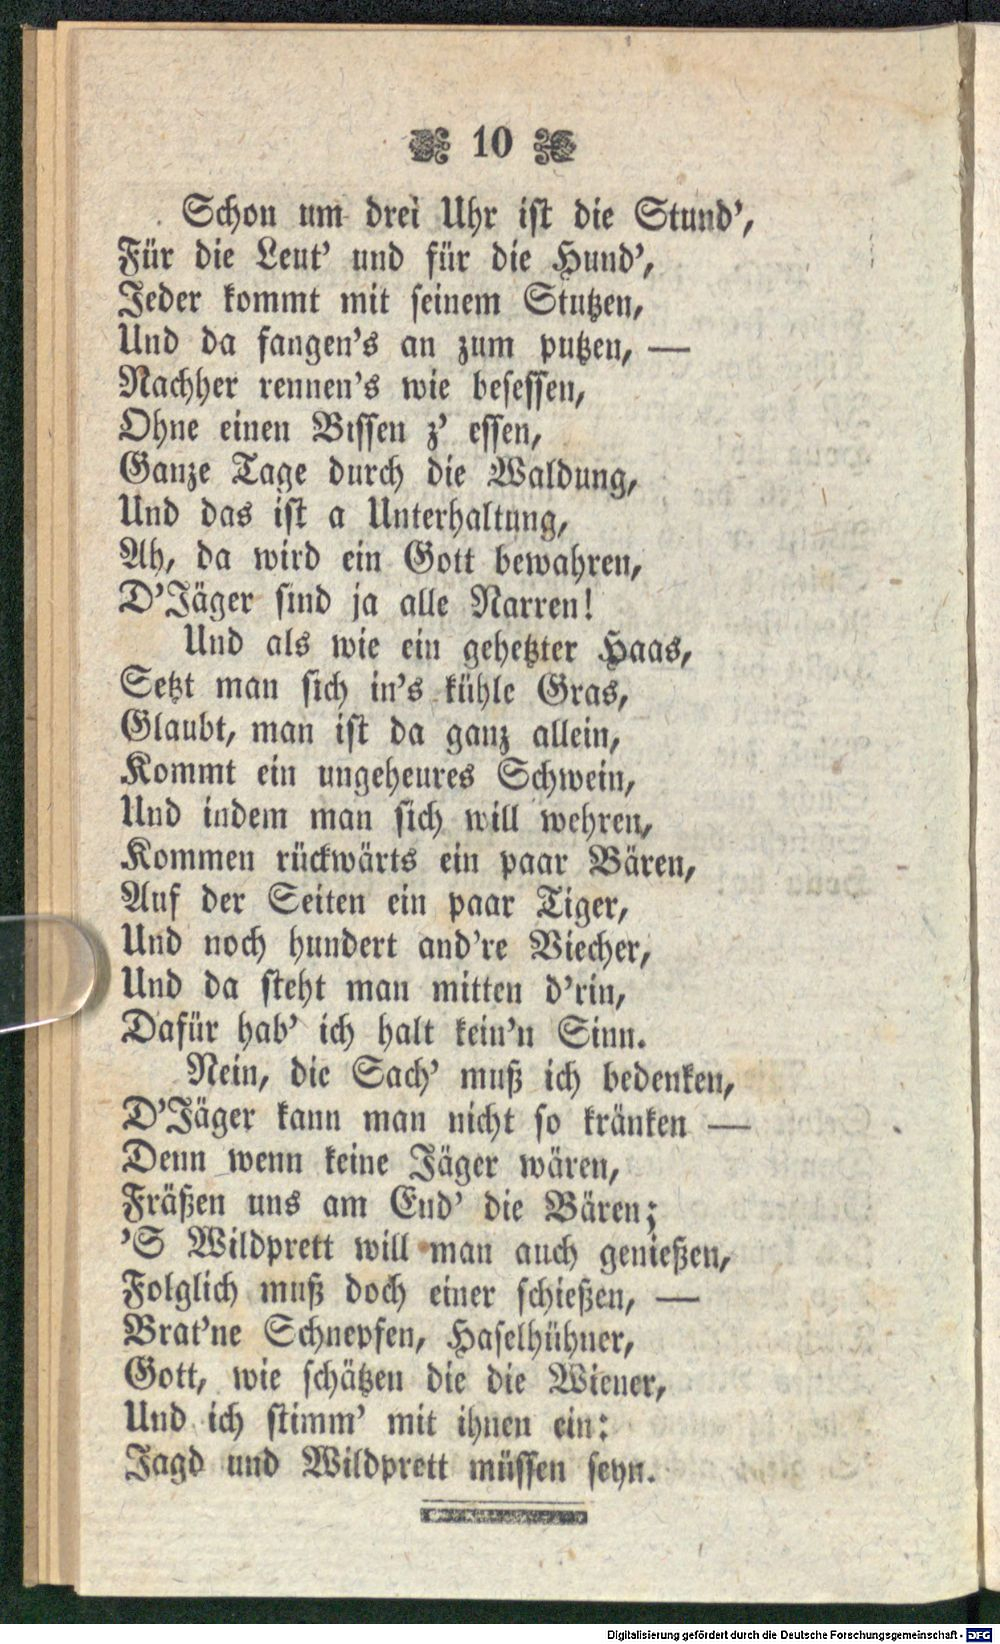 10
Schon um drei Uhr ist die Stund’,
Für die Leut’ und für die Hund’,
Jeder kommt mit seinem Stutzen,
Und da fangen’s an zum putzen, —
Nachher rennen’s wie besessen,
Ohne einen Bissen z’ essen,
Ganze Tage durch die Waldung,
Und das ist a Unterhaltung,
Ah, da wird ein Gott bewahren,
D’Jäger sind ja alle Narren!
Und als wie ein gehetzter Haas,
Setzt man sich in’s kühle Gras,
Glaubt, man ist da ganz allein,
Kommt ein ungeheures Schwein,
Und indem man sich will wehren,
Kommen rückwärts ein paar Bären,
Auf der Seiten ein paar Tiger,
Und noch hundert and’re Viecher,
Und da steht man mitten d’rin,
Dafür hab’ ich halt kein’n Sinn.
Nein, die Sach’ muß ich bedenken,
D’Jäger kann man nicht so kränken —
Denn wenn keine Jäger wären,
Fräßen uns am End’ die Bären;
’S Wildprett will man auch genießen,
Folglich muß doch einer schießen, —
Brat’ne Schnepfen, Haselhühner,
Gott, wie schätzen die die Wiener,
Und ich stimm’ mit ihnen ein:
Jagd und Wildprett müssen seyn.
Digitalisierung gefördert durch die Deutsche Forschungsgemeinschaft - DFG